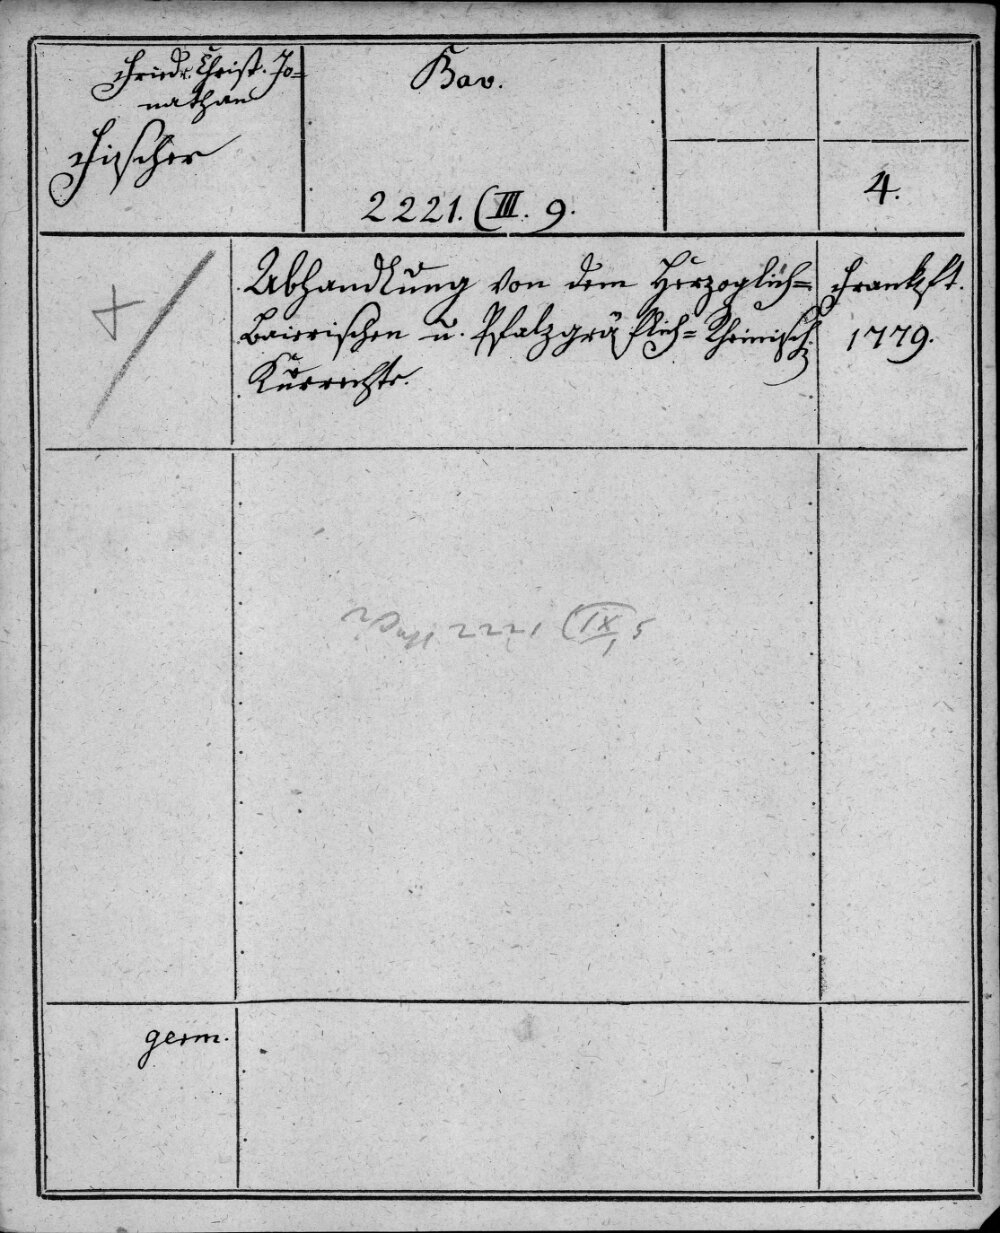 Friedr. Christ. Jo=
nathan
Fischer
Bav.
2221. (III. 9.
4.
Abhandlung von dem Herzoglich=
Baierischen u. Pfalzgräflich=Rheinisch.
Kurrechte.
Frankft.
1779.
2221 (IX/1, 5
germ.